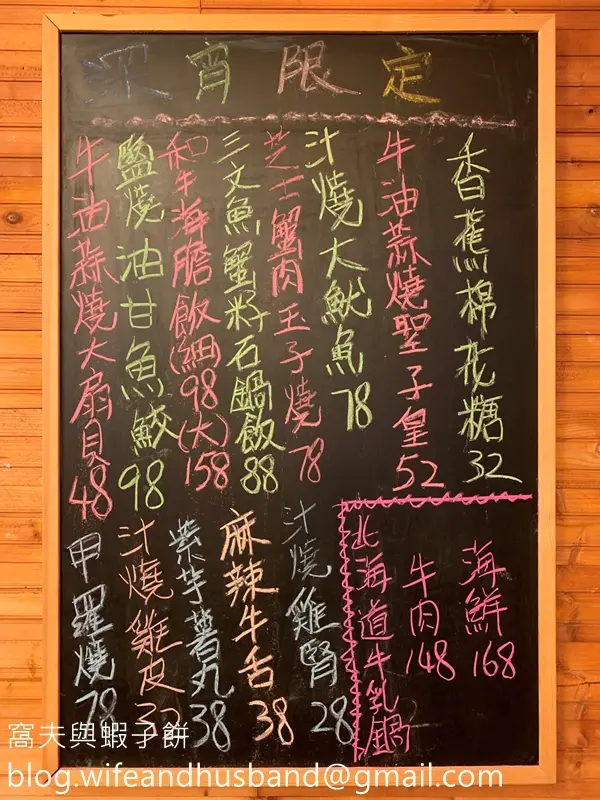 深宵限定
香蕉棉花糖 32
牛油蒜燒聖子皇 52
汁燒大魷魚 78
芝士蟹肉玉子燒 78
三文魚蟹籽石鍋飯 88
和牛海膽飯(細)98(大)158
鹽燒油甘魚鮫 98
牛油蒜燒大扇貝 48
海鮮 168
牛肉 148
北海道牛乳鍋
汁燒雞腎 28
麻辣牛舌 38
紫芋薯丸 38
汁燒雞皮 32
甲羅燒 78
窩夫與蝦子餅
blog.wifeandhusband@gmail.com